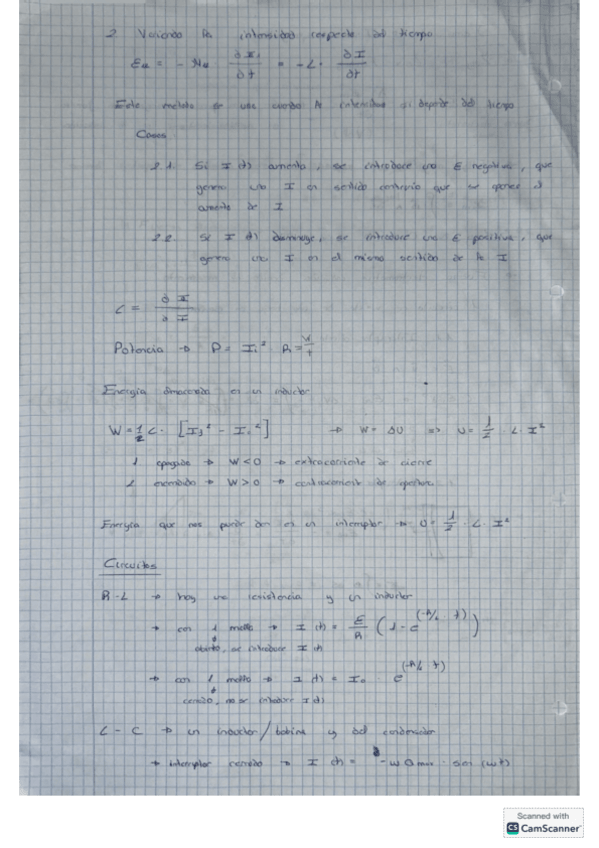 2. Variando la intensidad respecto del tiempo
= - L · ∂I / ∂t
Este metodo se usa cuando la intensidad si depende del tiempo
Casos
2.1. Si I(t) aumenta, se introduce una E negativa, que
genera una I en sentido contrario que se opone al
aumento de I
2.2. Si I(t) disminuye, se introduce una E positiva, que
genera una I en el mismo sentido de la I
Potencia → P =
Energia almacenada en un inductor
→ W = ΔU => U = 1/2 · L · I²
1 apagado → W < 0 → extracorriente de cierre
1 encendido → W > 0 →
Energia que nos puede dar en un interruptor → U = 1/2 · L · I²
Circuitos
R-L → hay una resistencia y un inductor
→ con 1 → I(t) = E/R (1 - e^(-R/L · t))
abierto, se introduce I(t)
→ con 1 → I(t) = I₀ · e^(-R/L · t)
cerrado, no se introduce I(t)
L-C → un inductor/bobina y condensador
→ interruptor cerrado → I(t) = -w Q max · sen (wt)
Scanned with
CS CamScanner